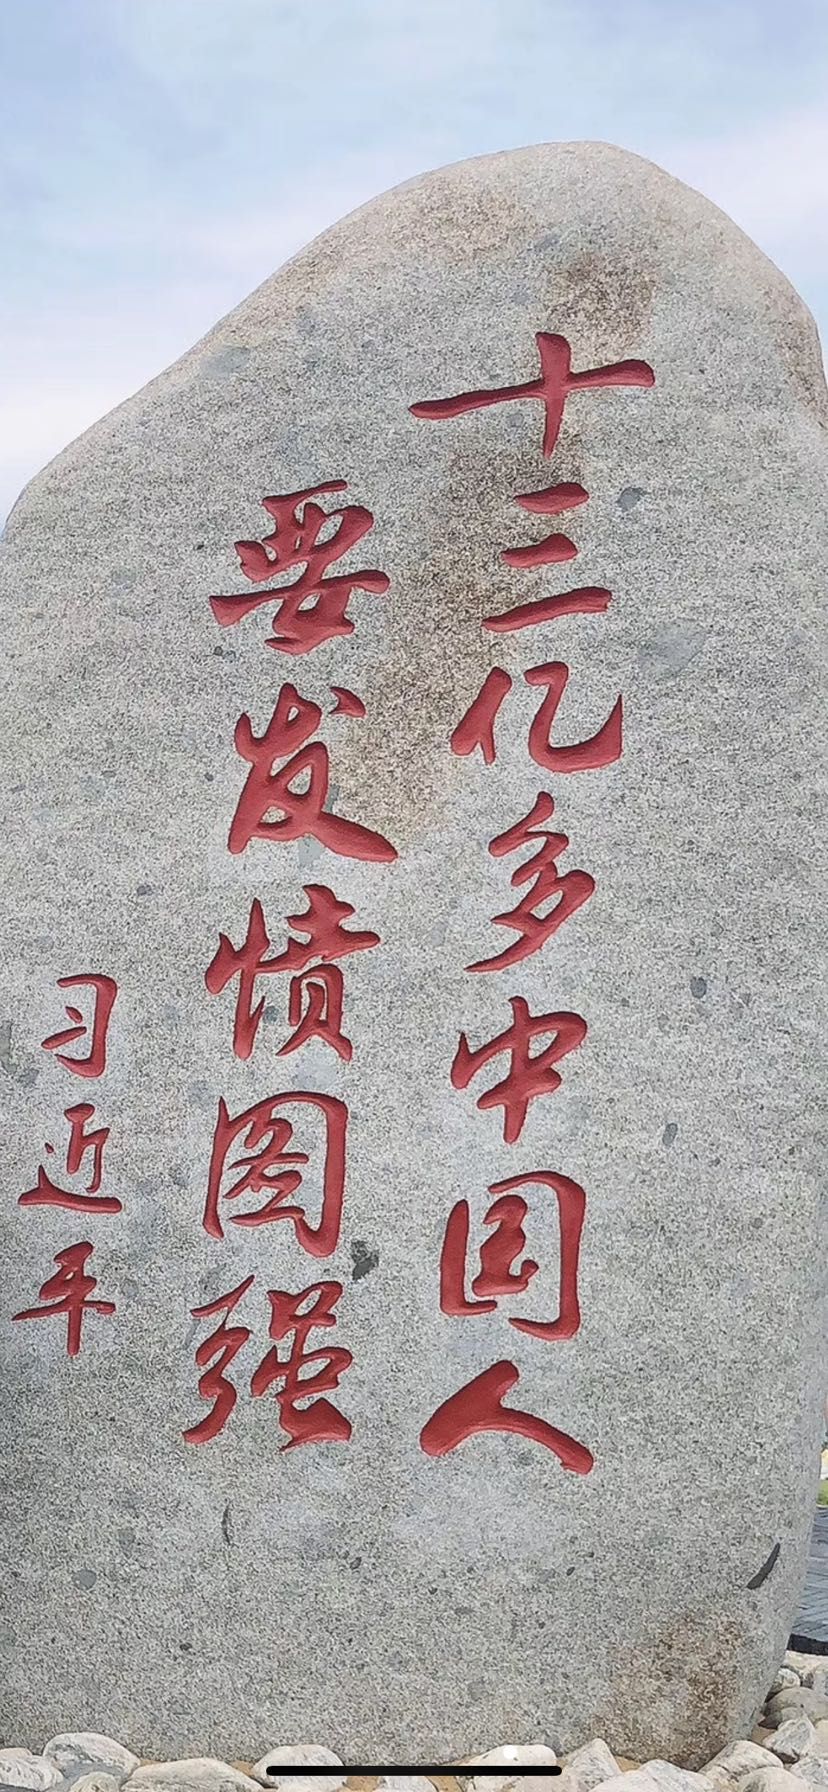 十三亿多中国人
要发愤图强
习近平